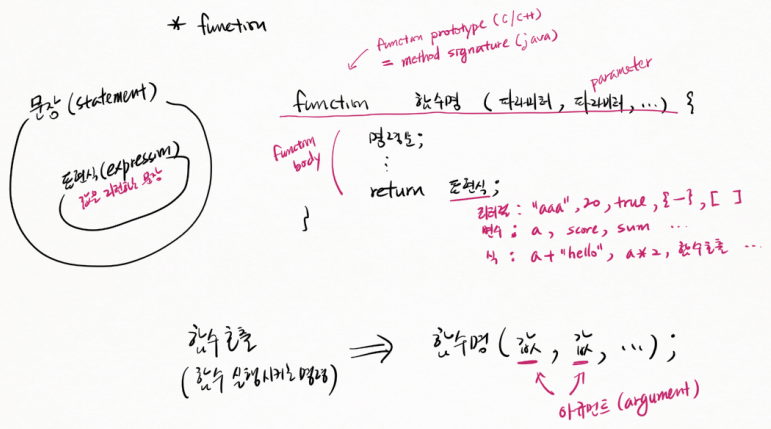 * function
function prototype (C/C++)
= method signature (java)
parameter
function 함수명 (파라미터, 파라미터, ...) {
function body
명령문;
⋮
return 표현식;
리터럴 : "aaa", 20, true, {-}, [ ]
변수 : a, score, sum ...
식 : a+"hello", a*2, 함수호출 ...
}
문장 (statement)
표현식(expression)
값을 리턴하는 문장
함수 호출 ⇒ 함수명 (값, 값, ...);
(함수 실행시키는 명령)
아규먼트 (argument)